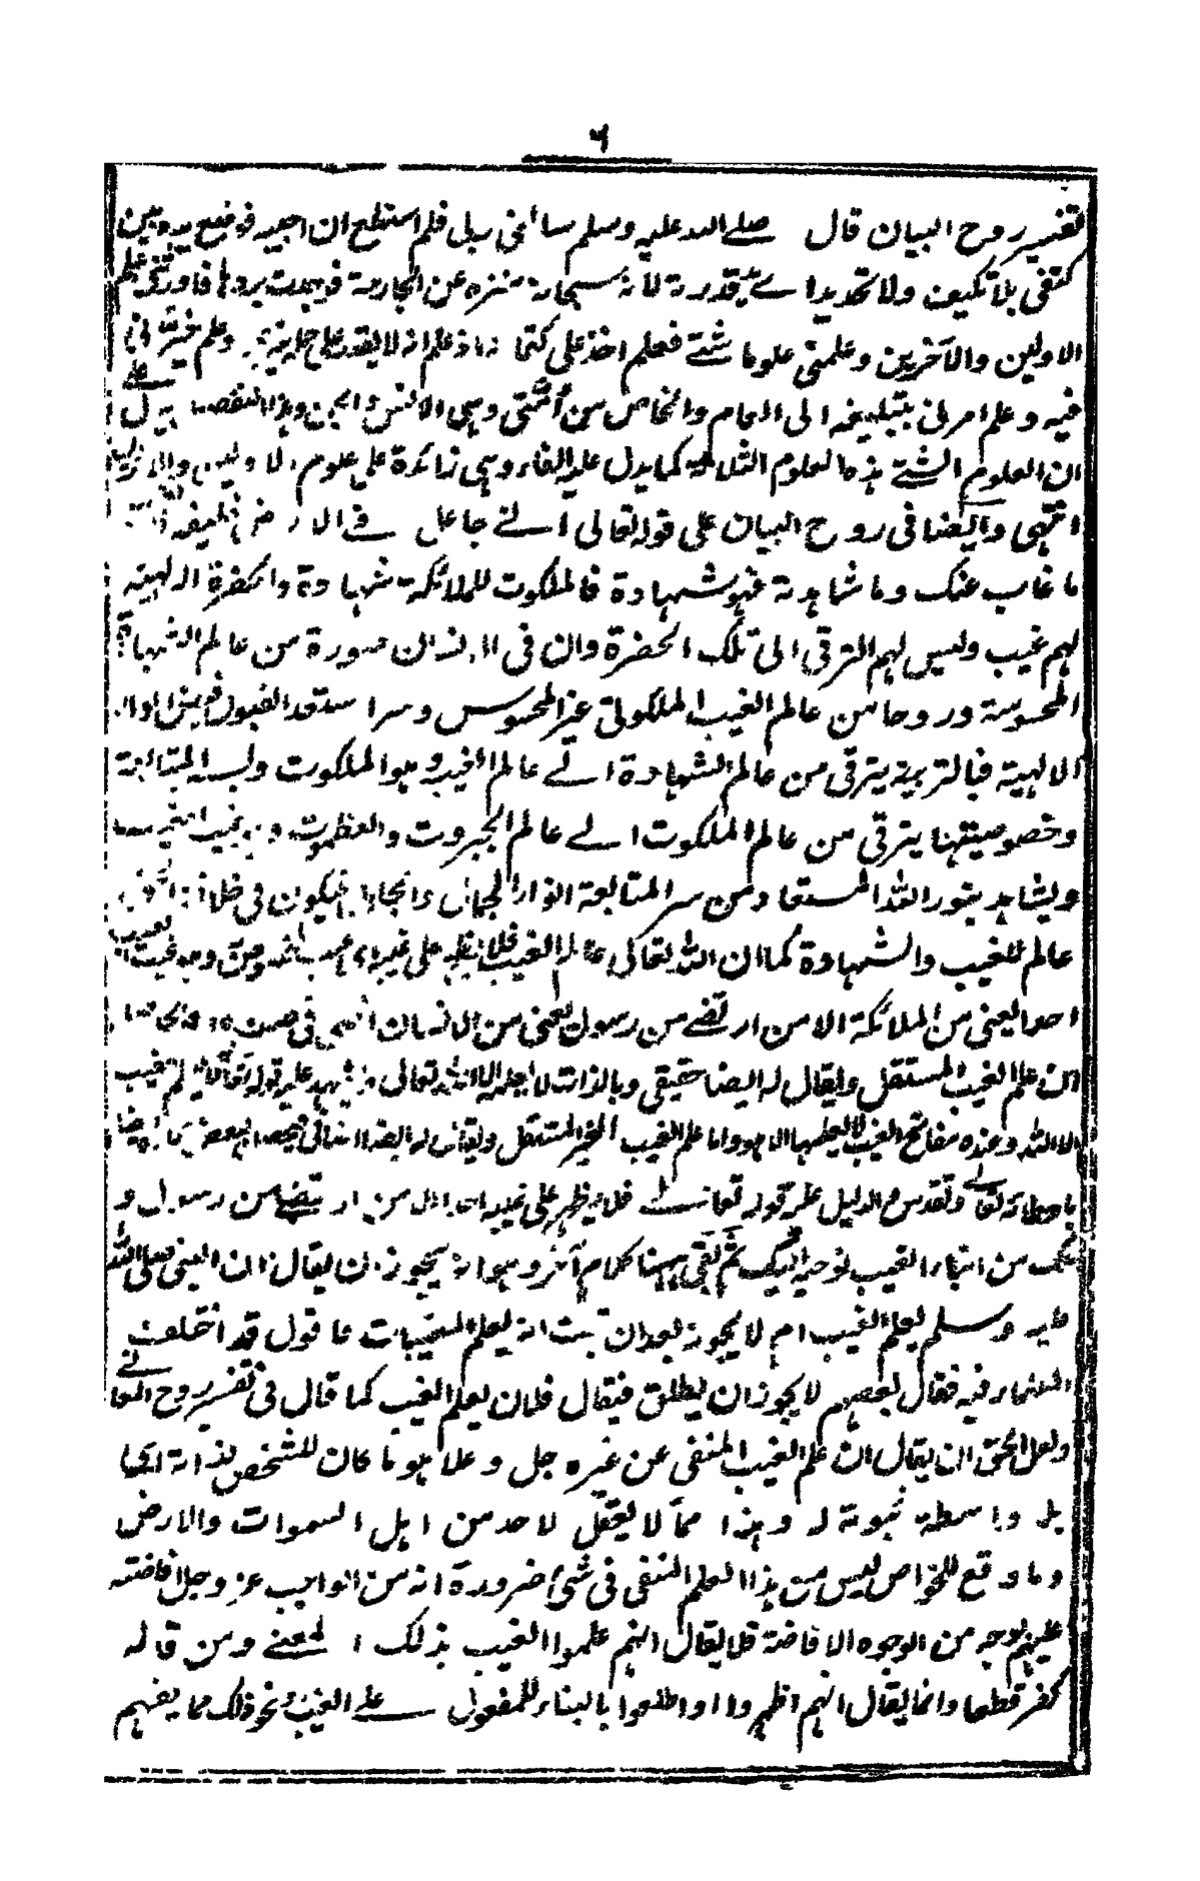 ٦
تفسير روح البيان قال صلے اللہ علیہ وسلم سألنی ربی فلم استطع ان اجیبہ فوضع یدہ بین
کتفی بلا تکییف ولا تحدید اے ید قدرتہ لانہ سبحانہ منزہ عن الجارحة فوجدت بردہا فاورثنی علم
الاولین والآخرین وعلمنی علوما شتے فعلم اخذ علی کتمانہ اذ علم انہ لا یقدر علی حملہ غیری وعلم خیرنی
فیہ وعلم امرنی بتبلیغہ الی العام والخاص من أمتی وہی الانس والجن وہذا التفصیل یدل علی
ان العلوم الشتے ہذہ العلوم الثلثة کما یدل علیہ الفاء وہی زائدة علی علوم الاولین والآخرین
انتہی وایضا فی روح البیان علی قولہ تعالی انے جاعل فے الارض خلیفة
ما غاب عنک وما شاہدتہ فہو شہادة فالملکوت للملائکة شہادة والحضرة الالہیة
لہم غیب ولیس لہم الترقی الی تلک الحضرة وان فی الانسان صورة من عالم الشہادة
المحسوسة وروحا من عالم الغیب الملکوتی غیر المحسوس وسرا مستعدا لقبول فیض انوار
الالہیة فبالتربیة یترقی من عالم الشہادة الے عالم الغیب وہو الملکوت وبسر المتابعة
وخصوصیتہا یترقی من عالم الملکوت الے عالم الجبروت والعظموت وہو غیب الغیب
ویشاہد بنور اللہ المستفاد من سر المتابعة انوار الجمال والجلال فیکون فی خلافة الحق
عالم الغیب والشہادة کما ان اللہ تعالی عالم الغیب فلا یظہر علی غیبہ
احدا یعنی من الملائکة الا من ارتضے من رسول یعنی من الانسان انتہی
ان علم الغیب المستقل ویقال لہ ایضا حقیقی وبالذات لا یعلمہ الا اللہ تعالی یشہد علیہ قولہ تعالی الغیب
الا اللہ وعندہ مفاتح الغیب لا یعلمہا الا ہو واما علم الغیب الغیر المستقل ویقال لہ ایضا اضافی
باعطائہ تعالی وتقدس والدلیل علیہ قولہ تعالے فلا یظہر علی غیبہ احدا الا من ارتضے من رسول و
تلک من انباء الغیب نوحیہ الیک ثم بقی ہہنا کلام آخر وہو انہ یجوز ان یقال ان النبی صلی اللہ
علیہ وسلم یعلم الغیب ام لا یجوز بعد ان ثبت انہ یعلم المغیبات فاقول قد اختلفت
العلماء فیہ فقال بعضہم لا یجوز ان یطلق فیقال فلان یعلم الغیب کما قال فی تفسیر روح المعانے
ولعل الحق ان یقال ان علم الغیب المنفی عن غیرہ جل وعلا ہو ما کان للشخص لذاتہ ای
بلا واسطة فی ثبوتہ لہ وہذا مما لا یعقل لاحد من اہل السموات والارض
وما وقع للخواص لیس من ہذا العلم المنفی فی شئ ضرورة انہ من الواجب عز وجل افاضتہ
علیہم بوجہ من الوجوہ الافاضة فلا یقال انہم علموا الغیب بذلک المعنے ومن قالہ
کفر قطعا وانما یقال انہم اظہروا او اطلعوا بالبناء للمفعول علے الغیب ونحو ذلک مما یفہم